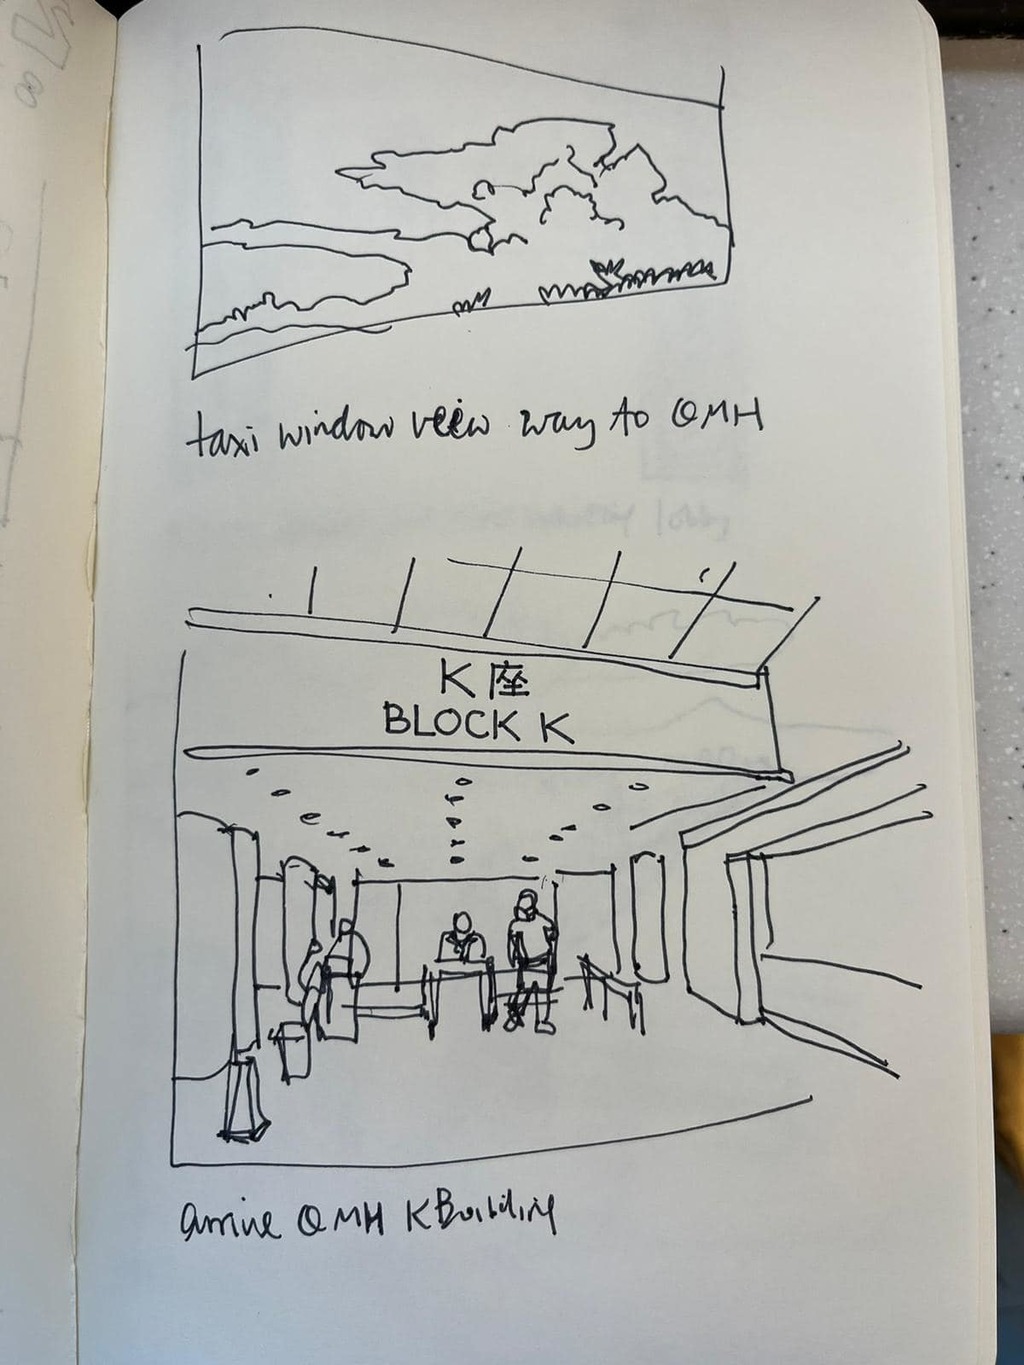 taxi window veiw way to QMH
K 座
BLOCK K
arrive QMH K Building